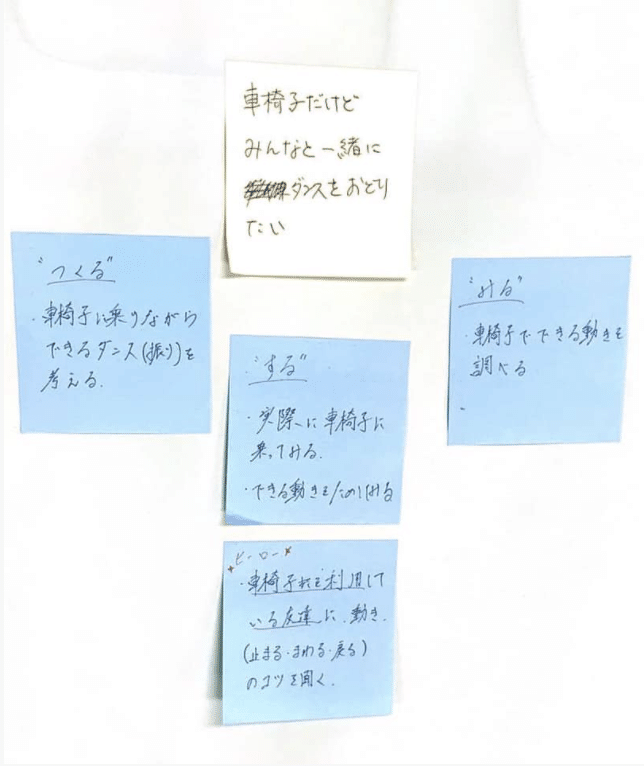 車椅子だけど
みんなと一緒に
ダンスをおどり
たい
"つくる"
・車椅子に乗りながら
できるダンス(振り)を
考える.
"する"
・実際に車椅子に
乗ってみる.
・できる動きをたのしみる
"みる"
・車椅子でできる動きを
調べる
・
★ヒーロー★
・車椅子を利用して
いる友達に、動き.
(止まる・まわる・戻る)
のコツを聞く.